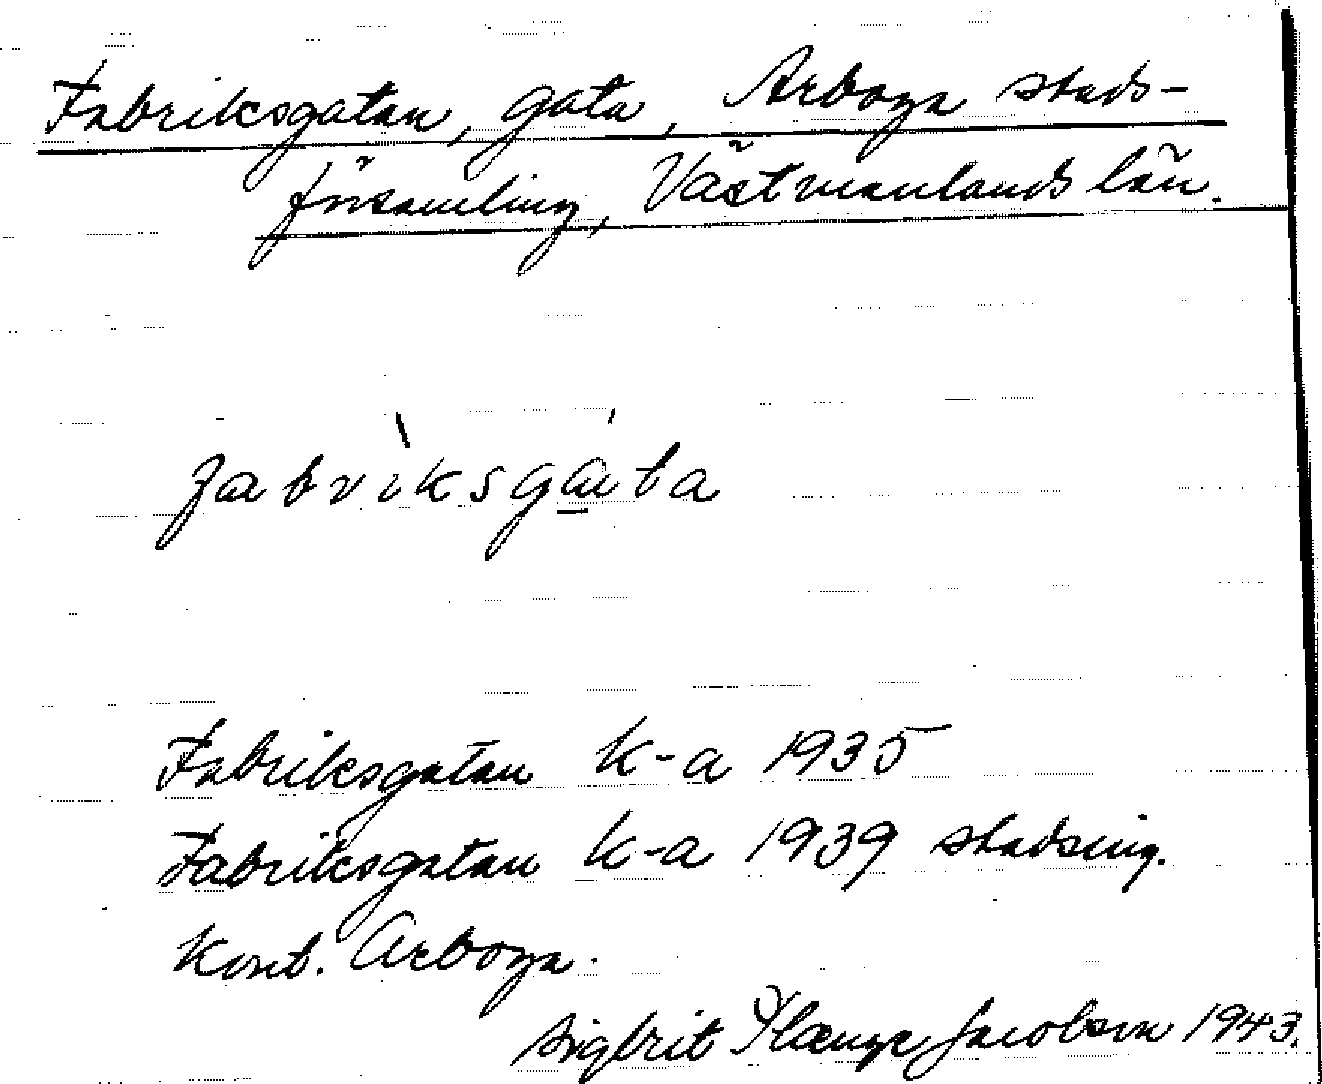 Fabriksgatan, gata, Arboga stads-
församling, Västmanlands län.
fabrìksgáta
Fabriksgatan k-a 1935
Fabriksgatan k-a 1939 stadsing.
kont. Arboga.
Sigbrit Plænge Jacobson 1943.